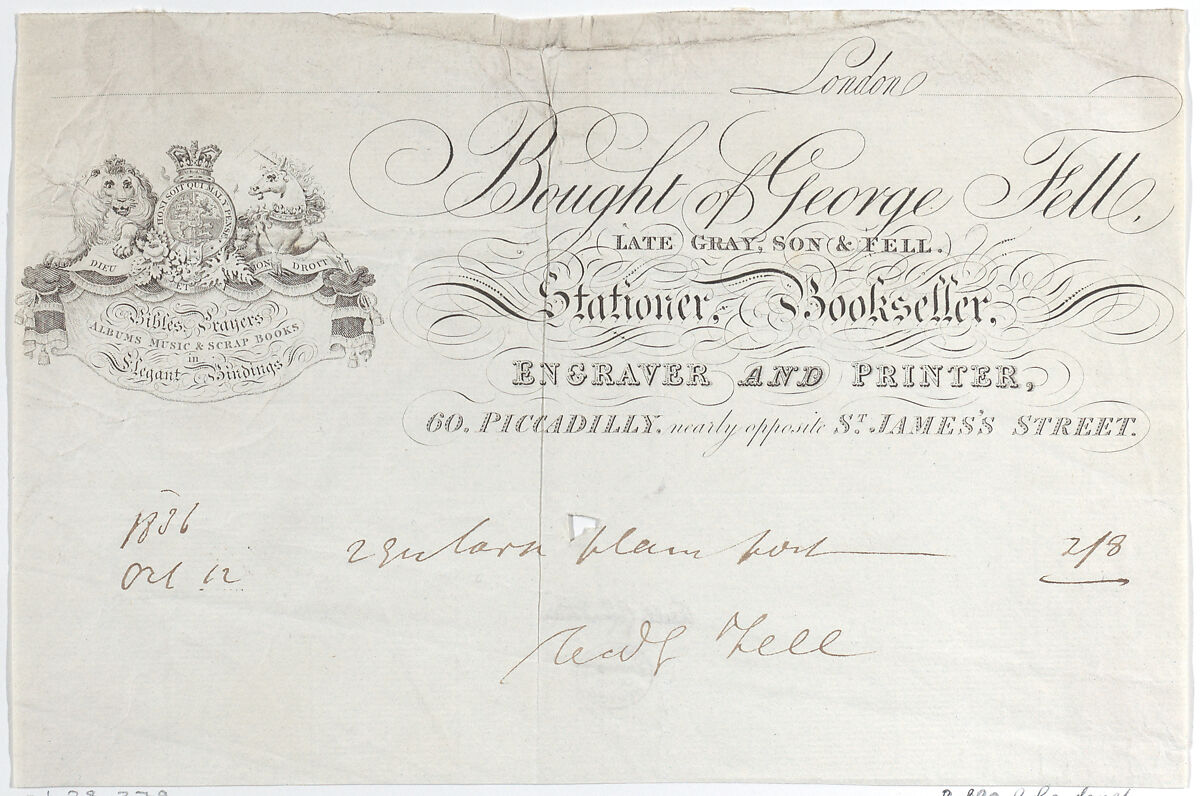 London
Bought of George Fell,
(LATE GRAY, SON & FELL.)
Stationer, Bookseller,
ENGRAVER AND PRINTER,
60, PICCADILLY, nearly opposite ST. JAMES'S STREET.
HONI SOIT QUI MAL Y PENSE
DIEU ET MON DROIT
Bibles, Prayers
ALBUMS MUSIC & SCRAP BOOKS
in
Elegant Bindings
1836
Oct 12
2 2/8
Fell